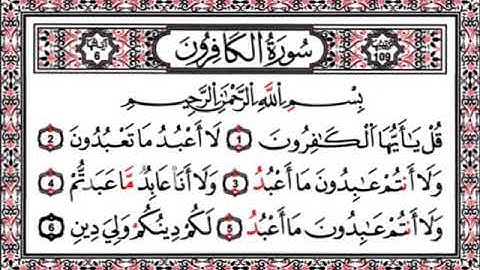 آياتها 6 سُورَةُ الْكَافِرُونَ ترتيبها 109
بِسْمِ اللَّهِ الرَّحْمَٰنِ الرَّحِيمِ
قُلْ يَا أَيُّهَا الْكَافِرُونَ 1 لَا أَعْبُدُ مَا تَعْبُدُونَ 2
وَلَا أَنتُمْ عَابِدُونَ مَا أَعْبُدُ 3 وَلَا أَنَا عَابِدٌ مَّا عَبَدتُّمْ 4
وَلَا أَنتُمْ عَابِدُونَ مَا أَعْبُدُ 5 لَكُمْ دِينُكُمْ وَلِيَ دِينِ 6